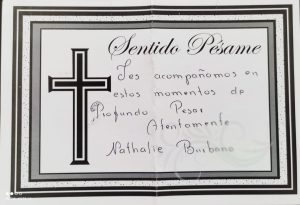 Sentido Pésame
Les acompañamos en
estos momentos de
Profundo Pesar
Atentamente
Nathalie Burbano